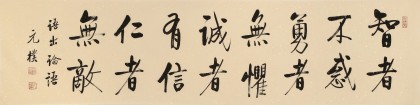 智者
不惑
勇者
無懼
誠者
有信
仁者
無敵
語出論語
元樸